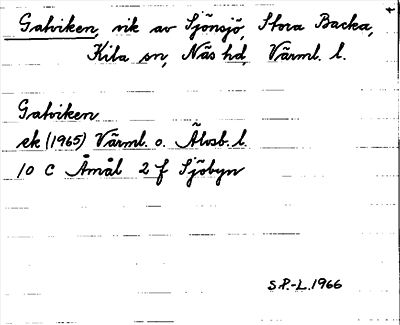 Galviken, vik av Sjönsjö, Stora Backa,
Kila sn, Näs hd, Värml. l.
Galviken
ek (1965) Värml. o. Älvsb. l.
10 C Åmål 2 f Sjöbyn
S.P.-L. 1966